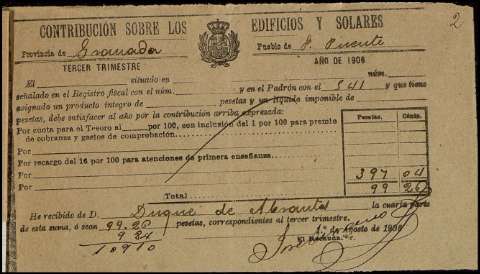 2
CONTRIBUCIÓN SOBRE LOS EDIFICIOS Y SOLARES
Provincia de Granada Pueblo de P. Puente
TERCER TRIMESTRE AÑO DE 1906
El situado en núm.
señalado en el Registro fiscal con el núm. y en el Padrón con el 541 y que tiene
asignado un producto íntegro de pesetas y un líquido imponible de
pesetas, debe satisfacer al año por la contribución arriba expresada:
Pesetas. Cénts.
Por cuota para el Tesoro al por 100, con inclusión del 1 por 100 para premio
de cobranza y gastos de comprobación.
Por
Por recargo del 16 por 100 para atenciones de primera enseñanza.
Por
Por 397 04
Total 99 26
He recibido de D. Duque de Abrantes la cuarta parte
de esta suma, ó sean 99.26 pesetas, correspondientes al tercer trimestre.
9 84 1.º de Agosto de 1906
109 10 El Recaudador